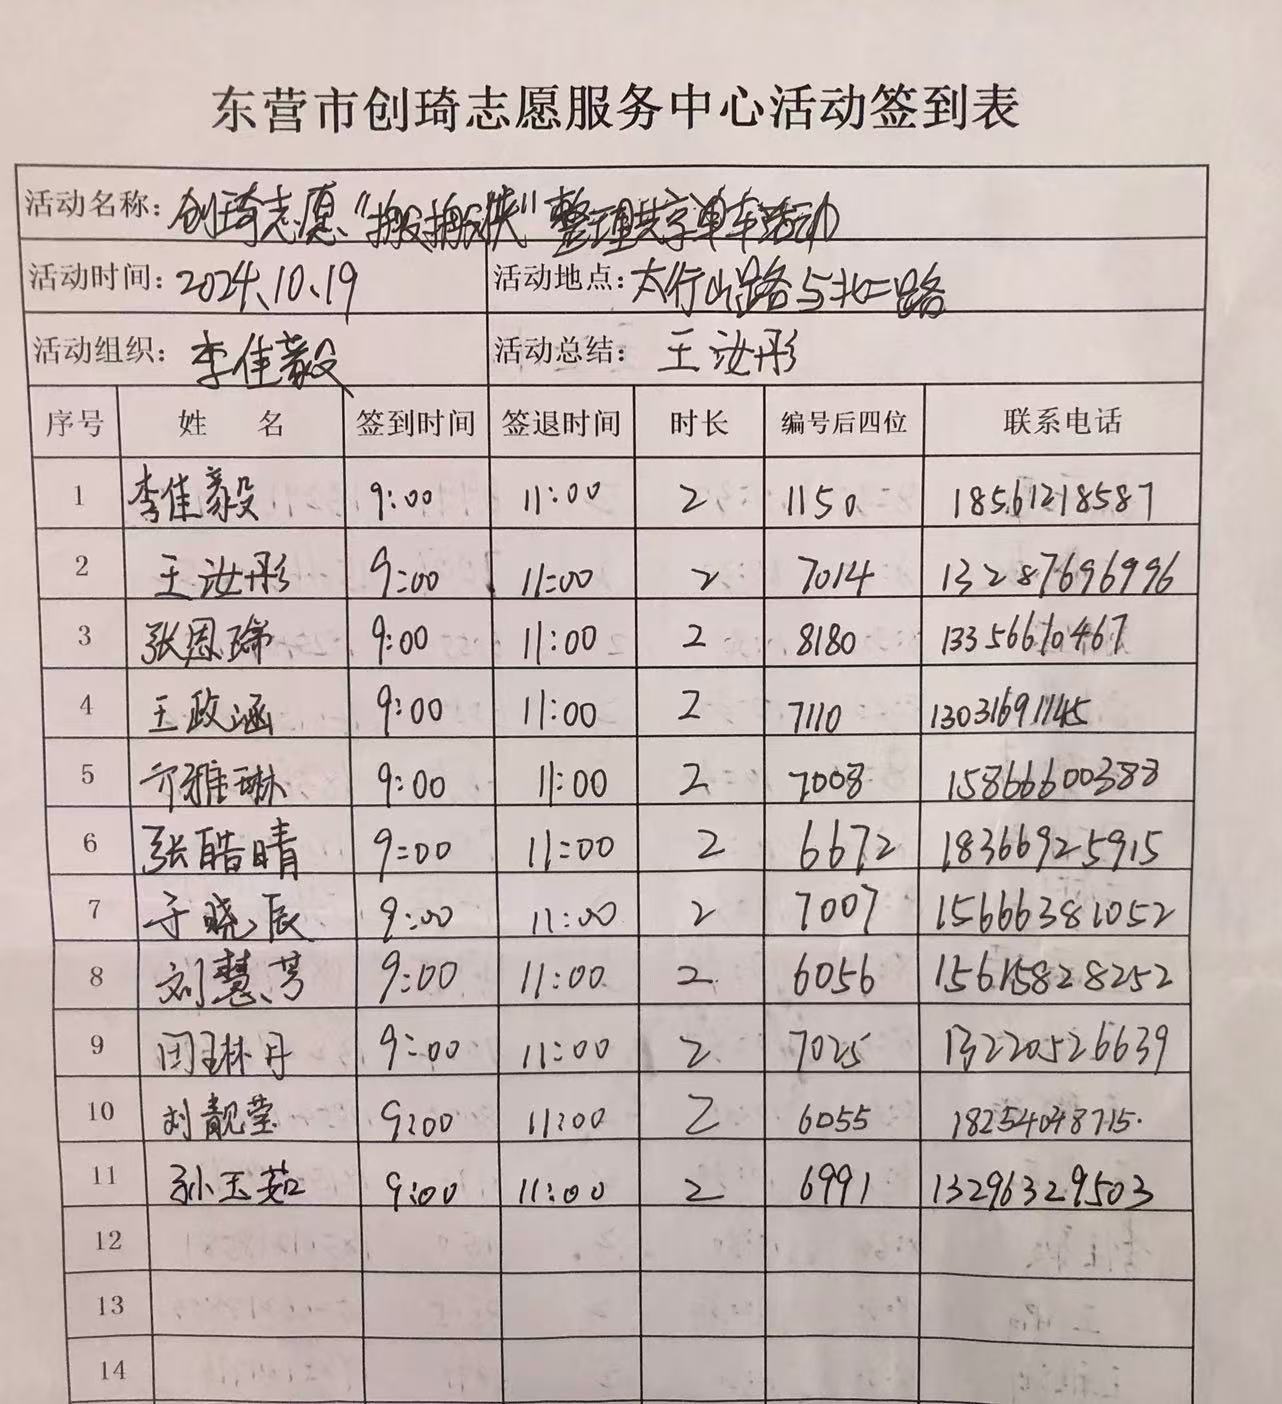 东营市创琦志愿服务中心活动签到表
活动名称：创琦志愿“搬搬侠”整理共享单车活动
活动时间：2024.10.19 活动地点：太行山路与北二路
活动组织：李佳毅 活动总结：王汝彤
序号 姓 名 签到时间 签退时间 时长 编号后四位 联系电话
1 李佳毅 9:00 11:00 2 1150 18561218587
2 王汝彤 9:00 11:00 2 7014 13287696996
3 张恩瑞 9:00 11:00 2 8180 13356610467
4 王政涵 9:00 11:00 2 7110 13031691145
5 亓雅琳 9:00 11:00 2 7008 15866600388
6 张皓晴 9:00 11:00 2 6672 18366925915
7 于晓辰 9:00 11:00 2 7007 15666381052
8 刘慧芳 9:00 11:00 2 6056 15615828252
9 闭琳丹 9:00 11:00 2 7025 13220526639
10 刘靓莹 9:00 11:00 2 6055 18254048715.
11 孙玉茹 9:00 11:00 2 6991 13296329503
12
13
14